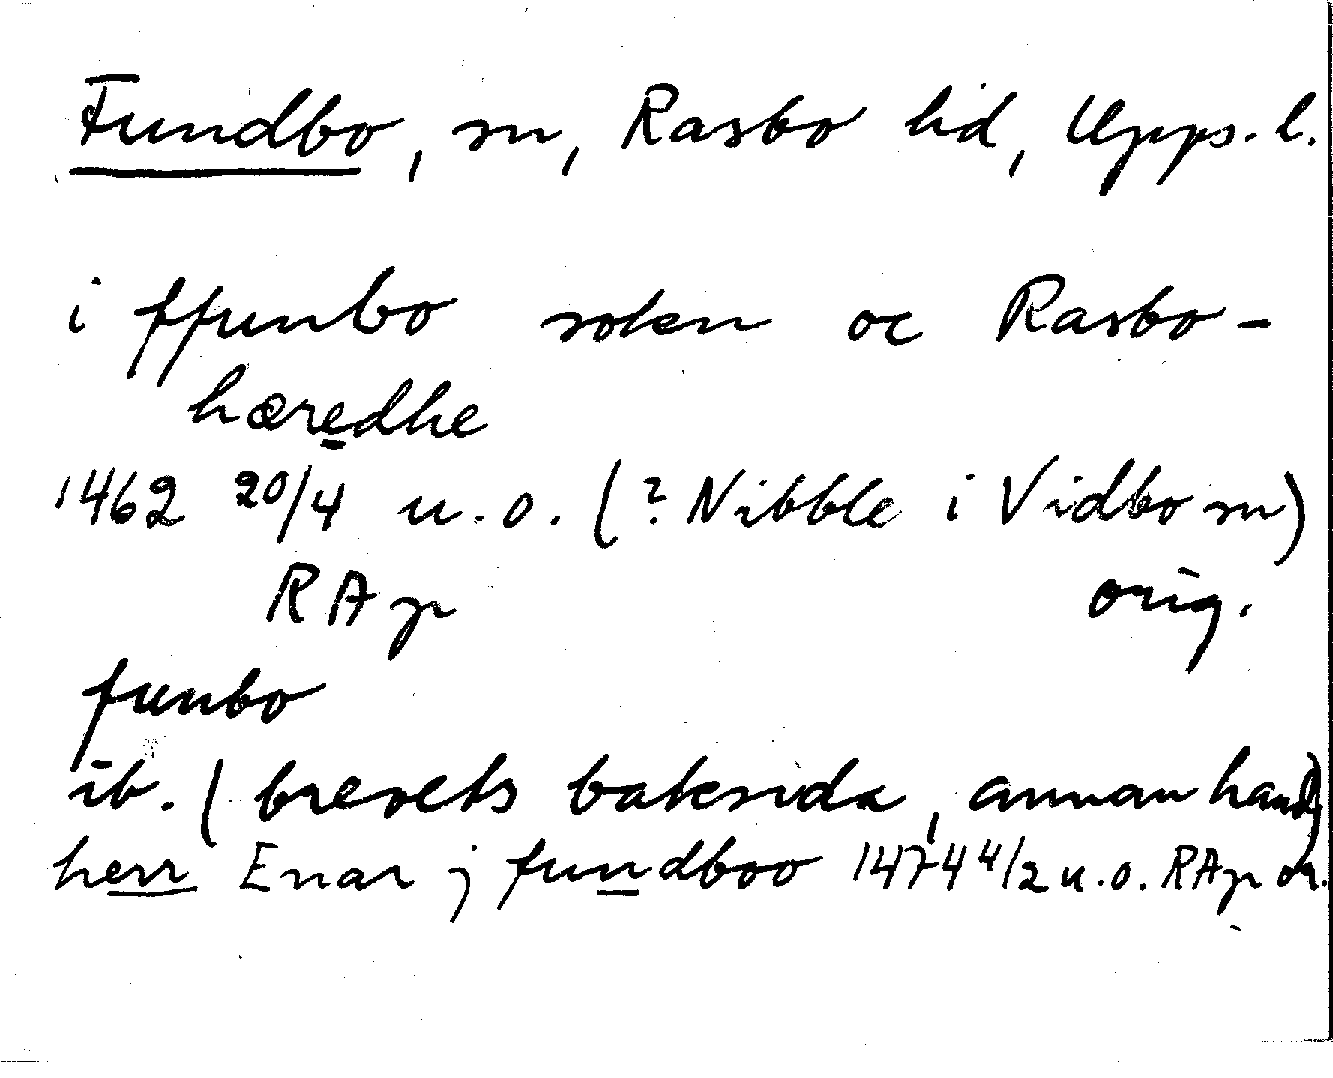 Fundbo, sn, Rasbo hd, Upps. l.
i ffunbo soken oc Rasbo-
hæredhe
1462 20/4 u.o. (? Nibble i Vidbo sn)
RAp orig.
funbo
ib. (brevets baksida, annan hand)
herr Enar j fundboo 1474 4/2 u.o. RAp or.